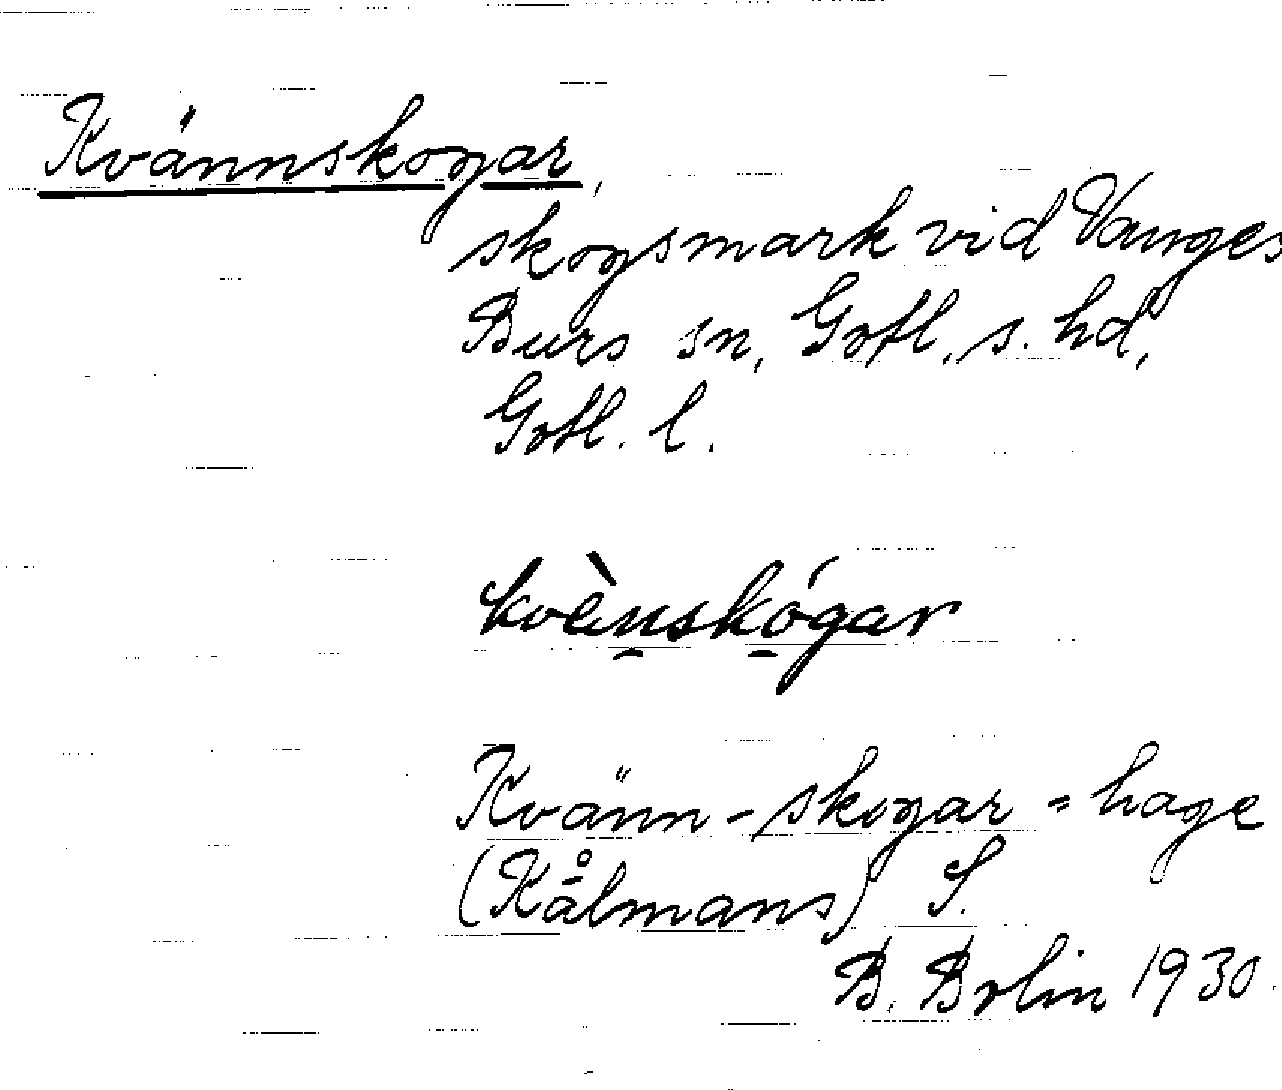 Kvännskogar,
skogsmark vid Vanges
Burs sn, Gotl. s. hd,
Gotl. l.
kvèn̯skó̯gar
Kvänn-skogar = hage
(Kålmans) S.
B. Bolin 1930.